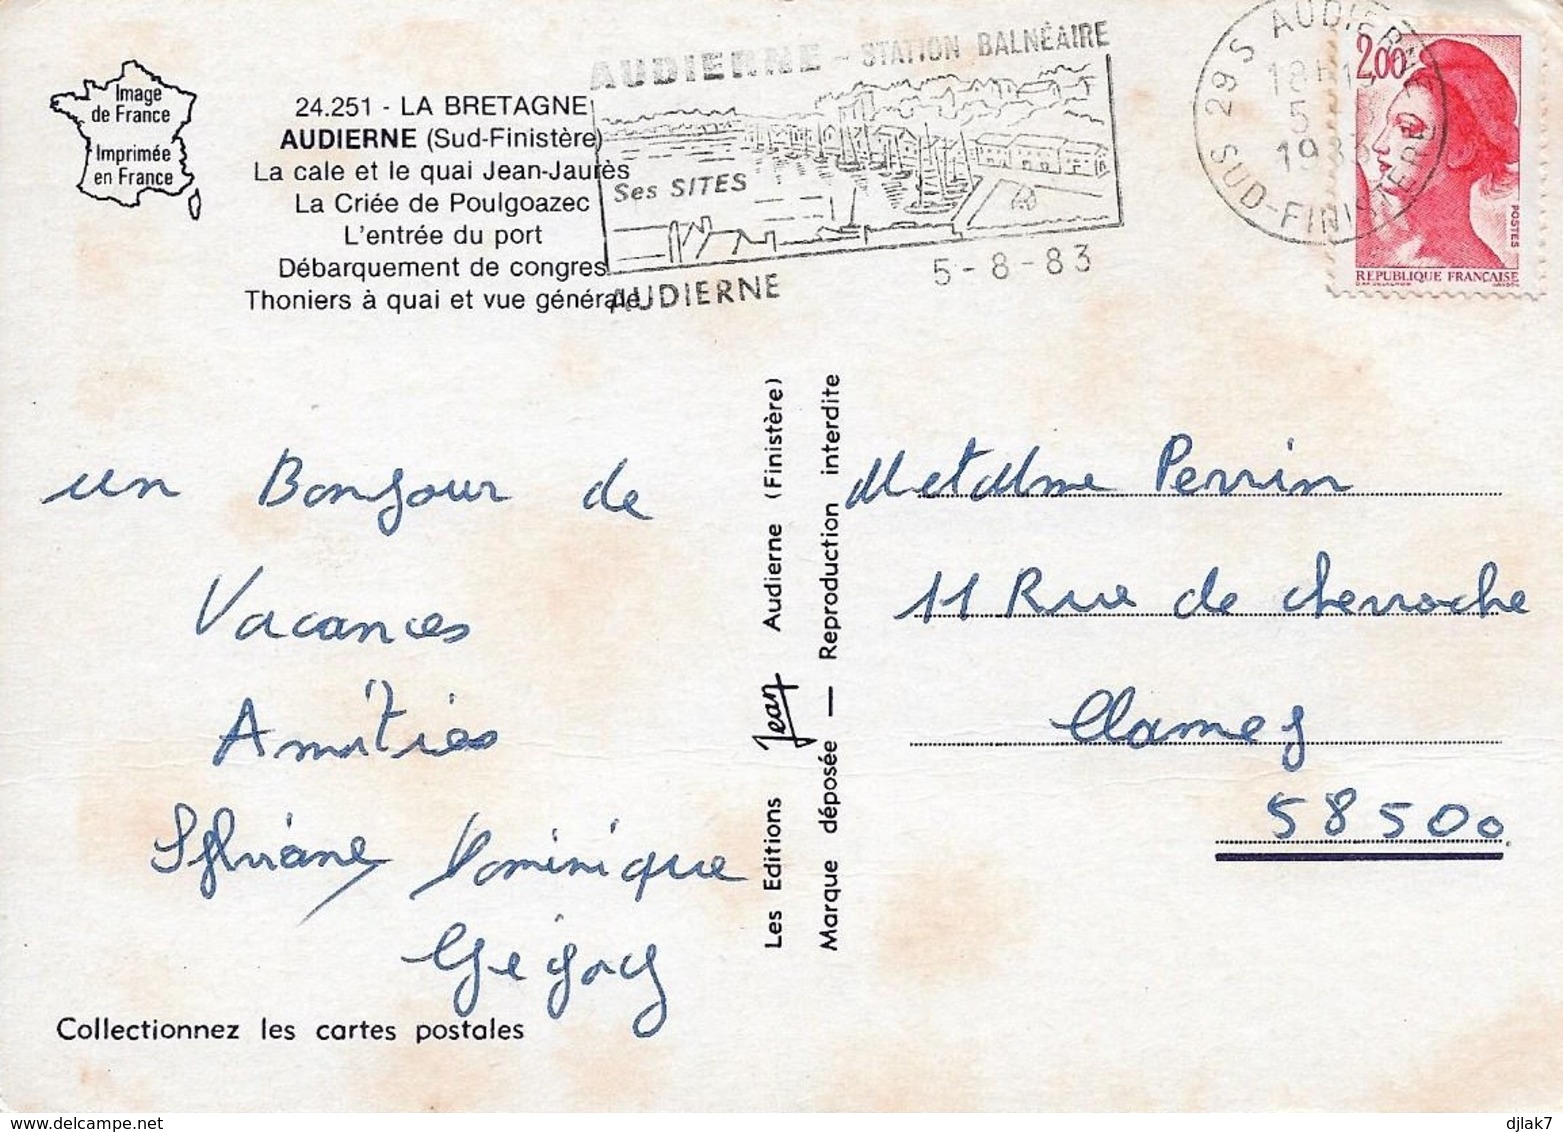 Image
de France
Imprimée
en France
24.251 - LA BRETAGNE
AUDIERNE (Sud-Finistère)
La cale et le quai Jean-Jaurès
La Criée de Poulgoazec
L'entrée du port
Débarquement de congres
Thoniers à quai et vue générale
AUDIERNE - STATION BALNÉAIRE
Ses SITES
AUDIERNE
5-8-83
29 S AUDIERNE
18H15
5 - 8
1983
SUD-FINISTERE
2,00
POSTES
REPUBLIQUE FRANÇAISE
un Bonjour de
Vacances
Amitiés
Sylviane Dominique
Collectionnez les cartes postales
Les Editions Jean Audierne (Finistère)
Marque déposée — Reproduction interdite
M et Mme Perrin
11 Rue de Cherroche
Clamey
58500
djlak7